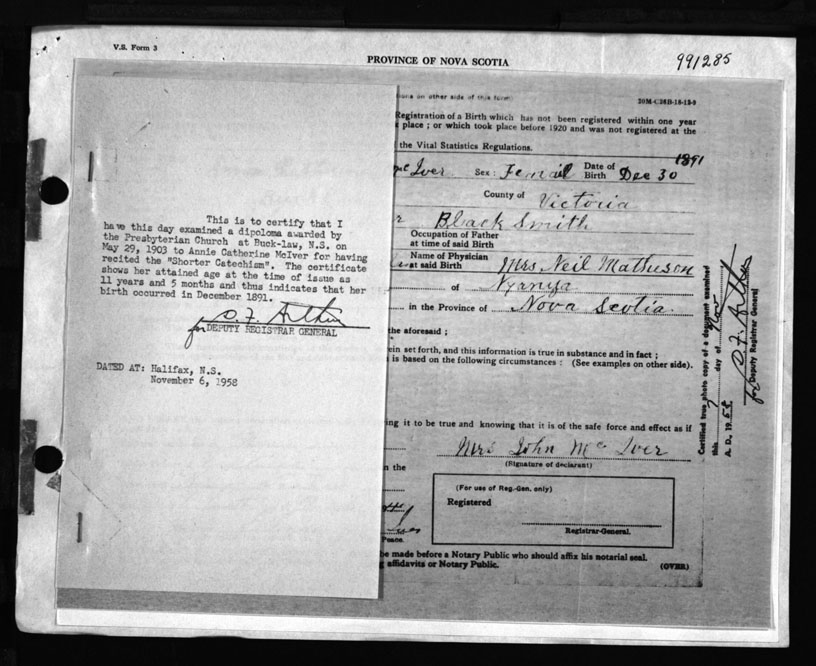 V.S. Form 3
PROVINCE OF NOVA SCOTIA
991285
This is to certify that I
have this day examined a dipoloma awarded by
the Presbyterian Church at Buck-law, N.S. on
May 29, 1903 to Annie Catherine McIver for having
recited the "Shorter Catechism". The certificate
shows her attained age at the time of issue as
11 years and 5 months and thus indicates that her
birth occurred in December 1891.
for DEPUTY REGISTRAR GENERAL
DATED AT: Halifax, N.S.
November 6, 1958
ons on other side of this form)
20M-C26B-16-12-9
Registration of a Birth which has not been registered within one year
place ; or which took place before 1920 and was not registered at the
the Vital Statistics Regulations.
1891
Mc Iver Sex: Femail Date of Birth Dec 30
County of Victoria
Black Smith
Occupation of Father
at time of said Birth
Name of Physician
at said Birth Mrs Neil Matheson
of
in the Province of Nova Scotia
the aforesaid ;
ein set forth, and this information is true in substance and in fact ;
is based on the following circumstances : (See examples on other side).
ing it to be true and knowing that it is of the safe force and effect as if
Mrs John Mc Iver
(Signature of declarant)
in the
(For use of Reg.-Gen. only)
Registered
Registrar-General.
Peace.
be made before a Notary Public who should affix his notarial seal.
g affidavits or Notary Public.
(OVER)
Certified true photo copy of a document examined
this 7 day of Nov
A. D., 19 58
for Deputy Registrar General